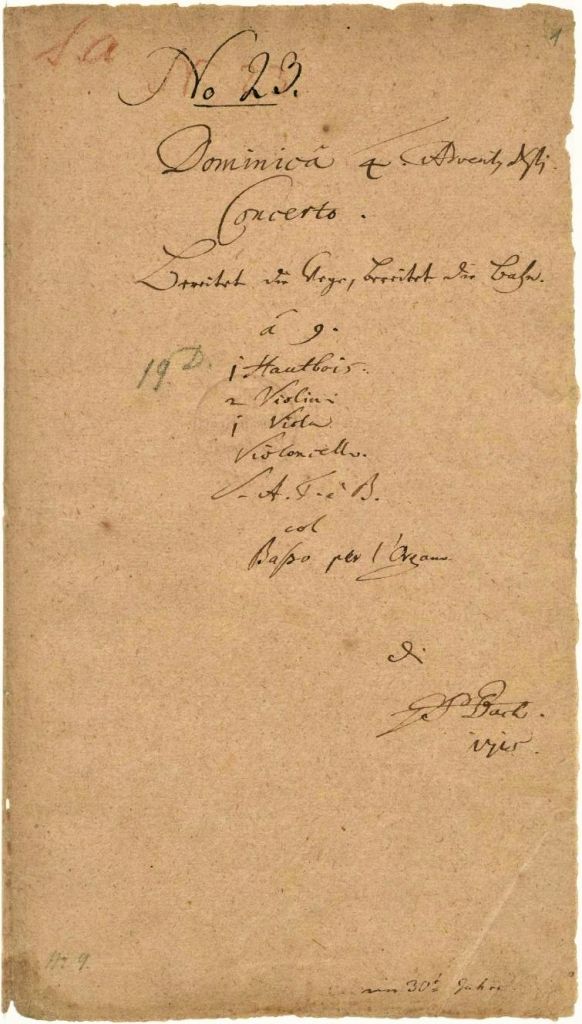 1
S.a
No 23.
Dominicâ 4. Advent,
Concerto.
Bereitet die Wege, bereitet die Bahn.
â 9.
19. D.
1 Hautbois.
2 Violini
1 Viola
Violoncello.
S. A. T. è B.
col
Basso per l'Organo
di
J S Bach.
1715.
No 9.
im 30t Jahre